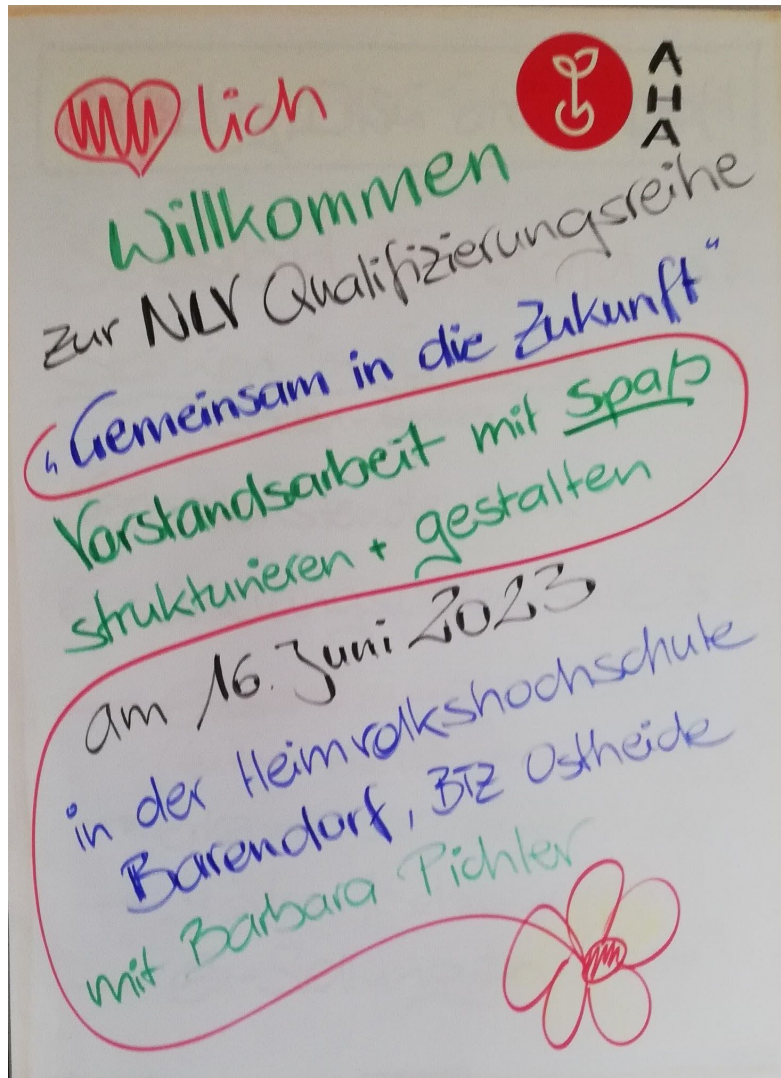 lich
AHA
Willkommen
zur NLV Qualifizierungsreihe
„Gemeinsam in die Zukunft“
Vorstandsarbeit mit Spaß
strukturieren + gestalten
am 16. Juni 2023
in der Heimvolkshochschule
Barendorf, BTZ Ostheide
mit Barbara Pichler